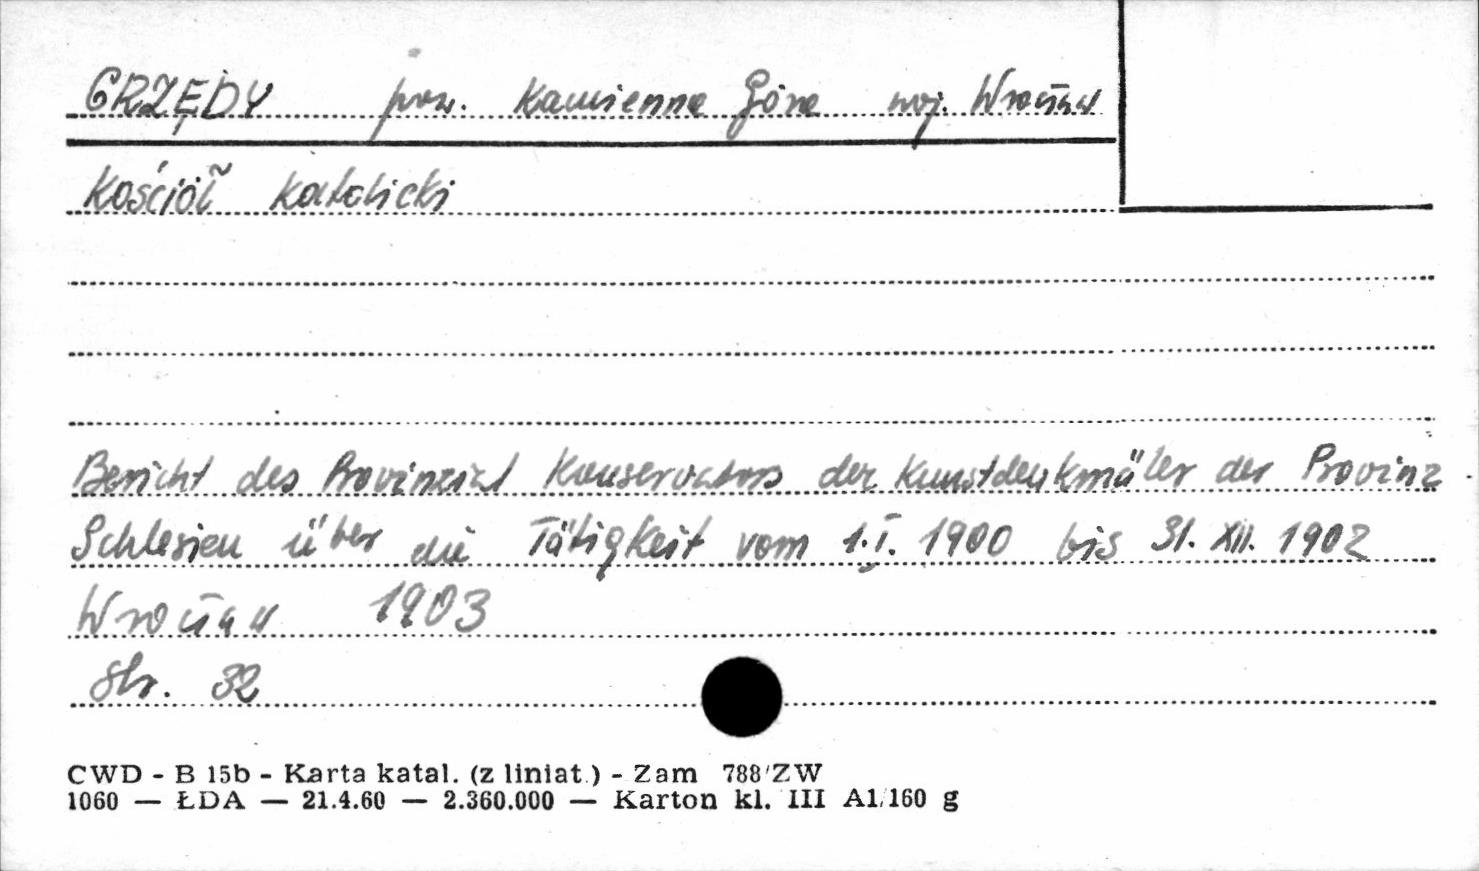 GRZĘDY pow. Kamienna Góra woj. Wrocław
Kościół katolicki
Bericht des Provinzial Konservators der Kunstdenkmäler der Provinz
Schlesien über die Tätigkeit vom 1.I. 1900 bis 31. XII. 1902
Wrocław 1903
str. 32
CWD - B 15b - Karta katal. (z liniat.) - Zam 788/ZW
1060 — ŁDA — 21.4.60 — 2.360.000 — Karton kl. III A1/160 g